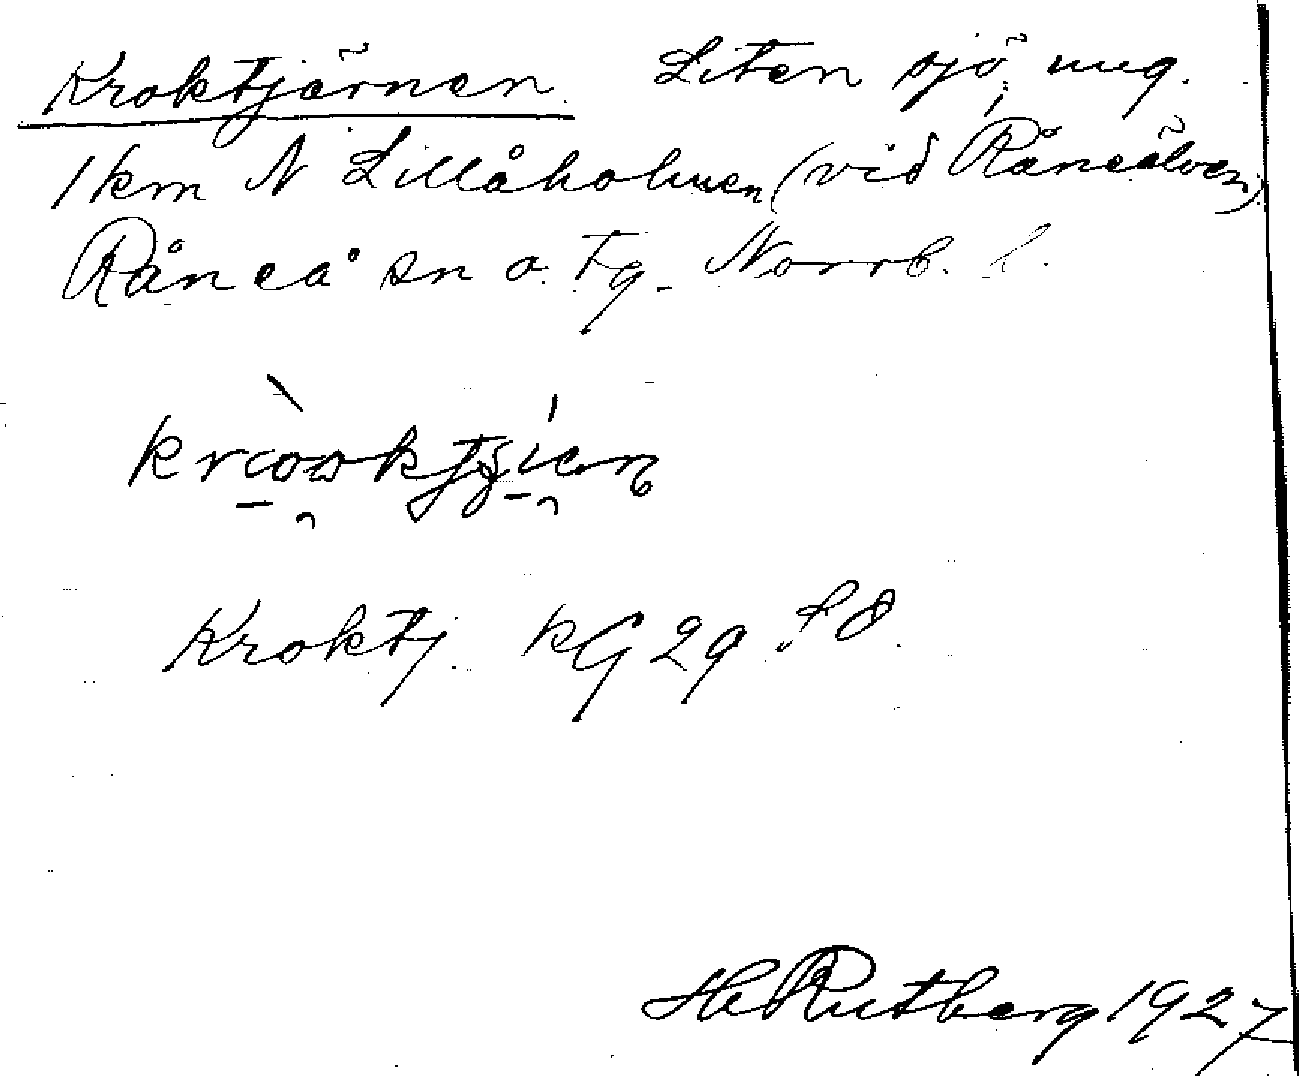 Kroktjärnen. Liten sjö, ung.
1 km N Lillåholmen (vid Råneälven)
Råneå sn o. tg. Norrb. l.
Kroktj. KG 29 f8.
H Rutberg 1927